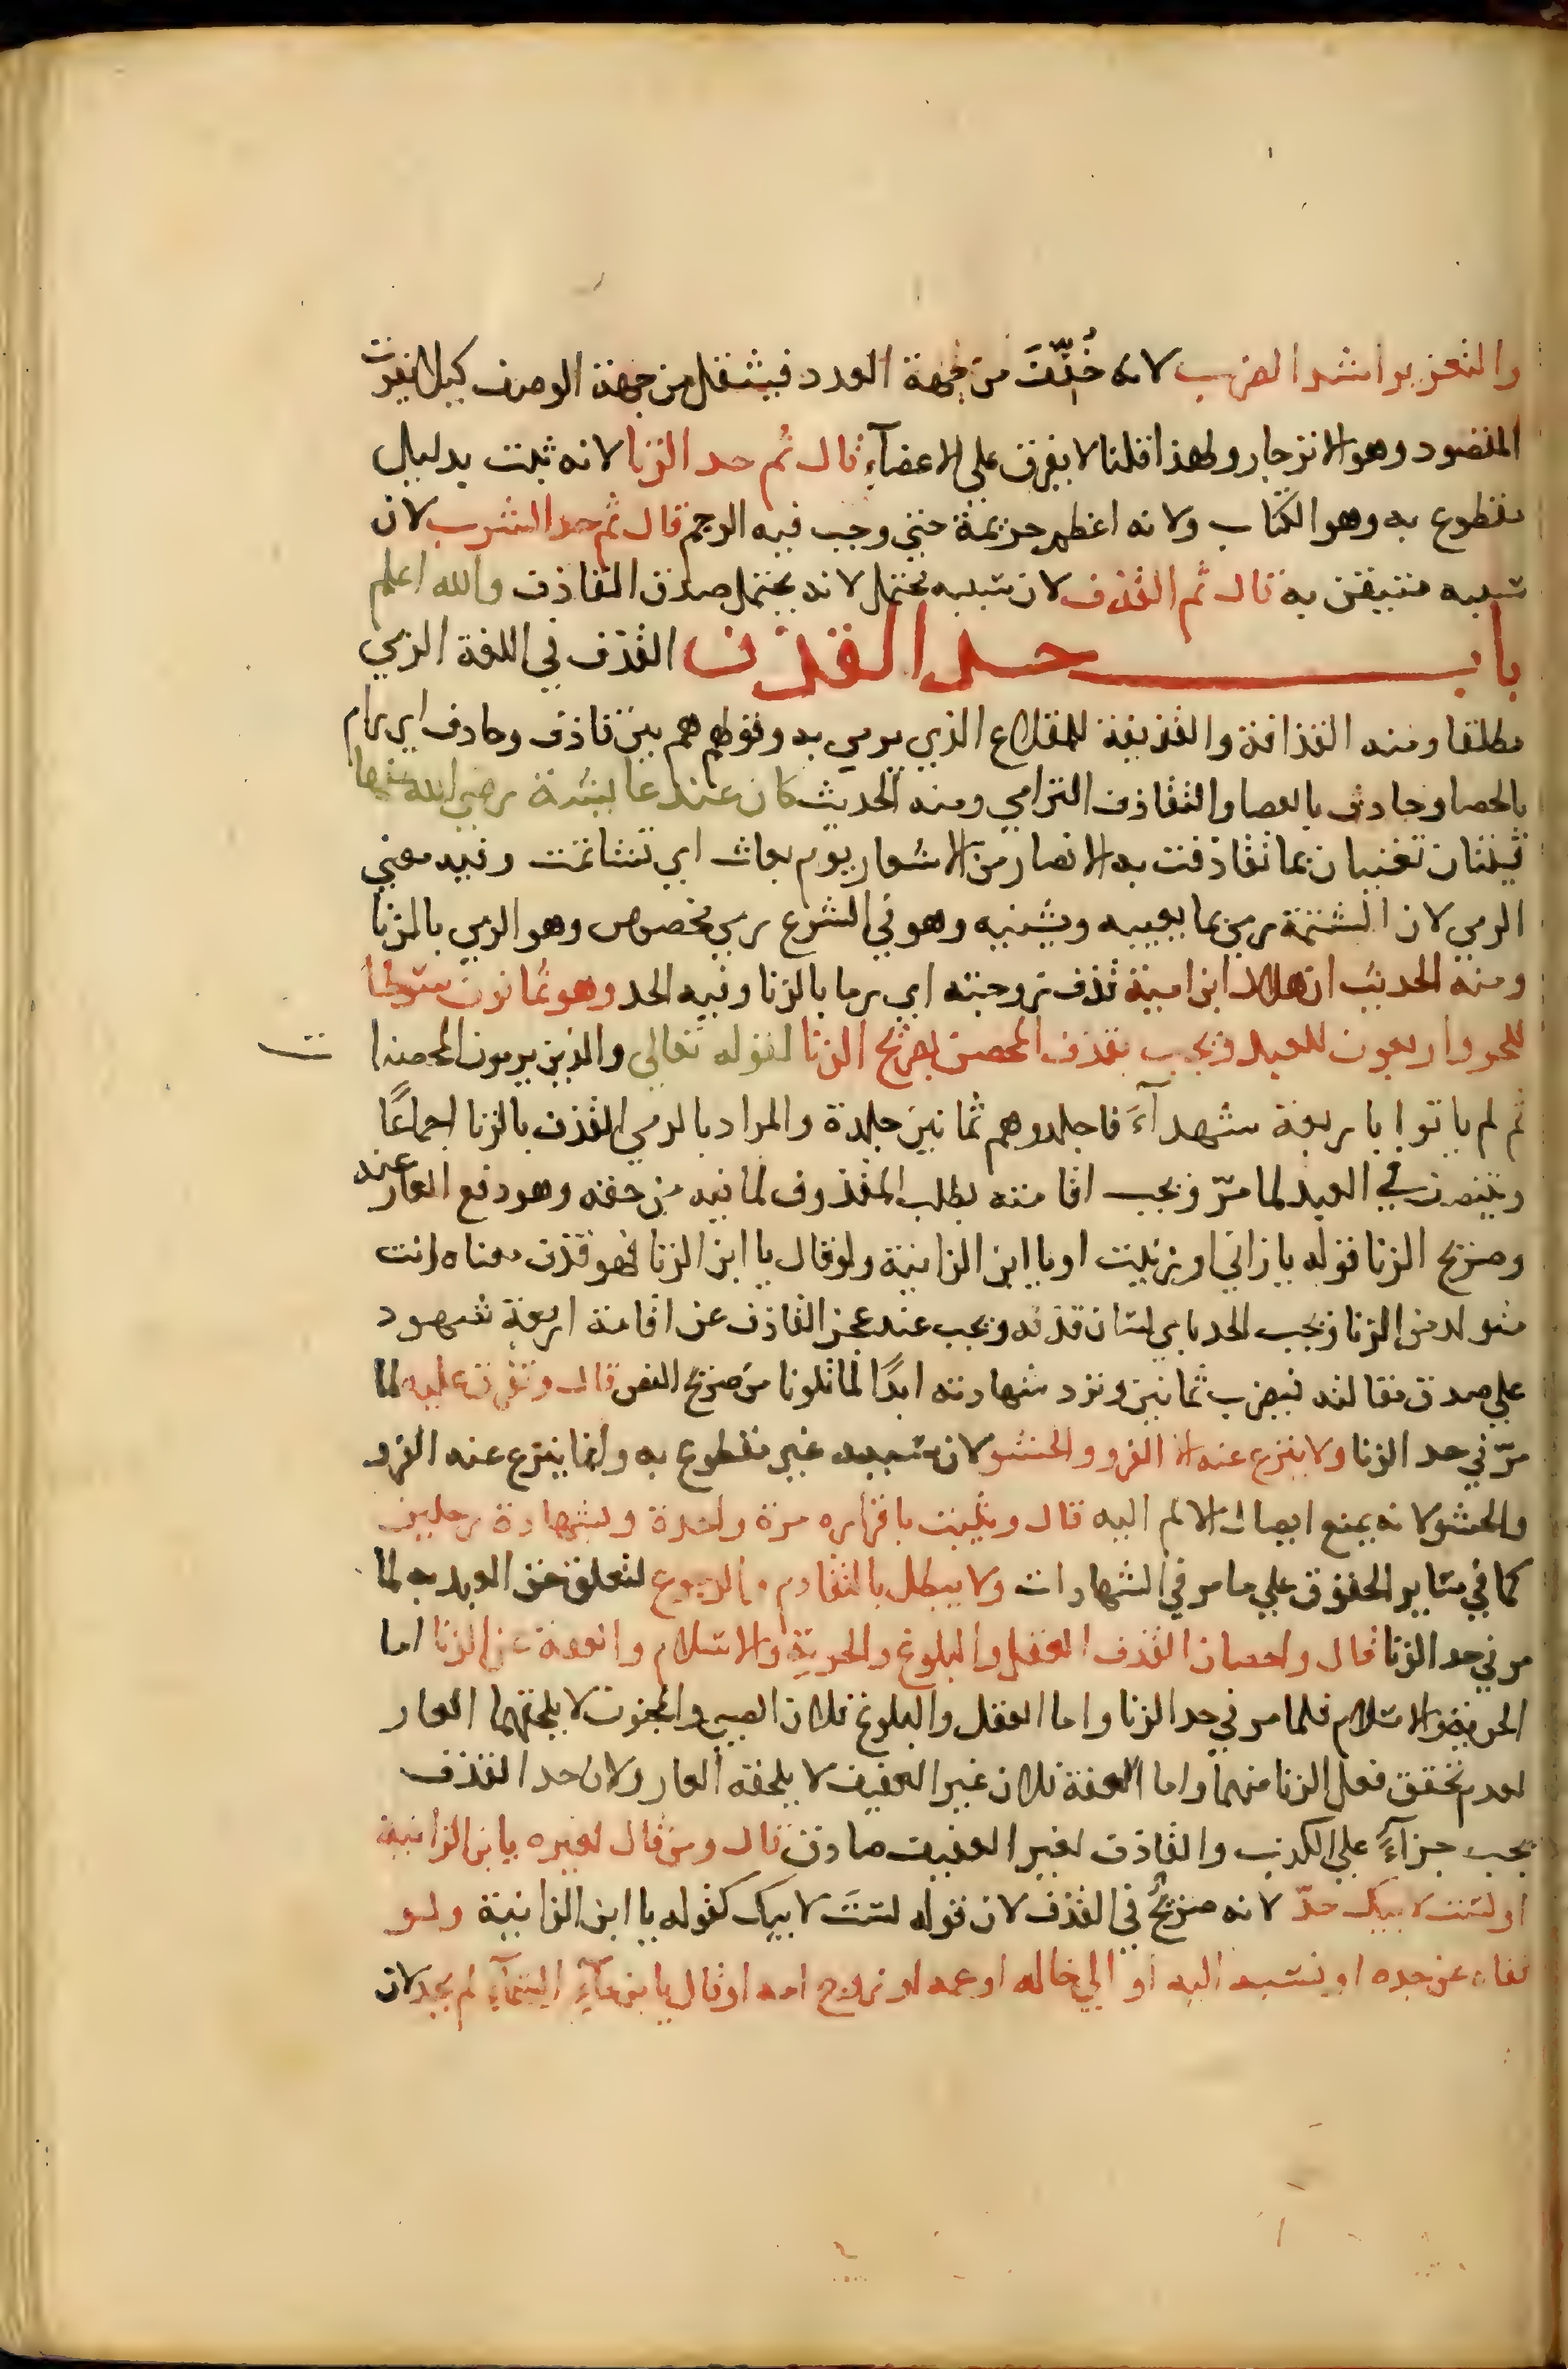 والتعزير اشد الضرب لانه خُفّفَ من جهة العدد فيثقل من جهة الوصف كيلا يفوت
المقصود وهو الانزجار ولهذا قلنا لا يفرق على الاعضآء قال ثم حد الزنا لانه ثبت بدليل
مقطوع به وهو الكتاب ولانه اعظم جريمة حتى وجب فيه الرجم قال ثم حد الشرب لان
سببه متيقن به قال ثم القذف لان سببه محتمل لانه يحتمل صدق القاذف والله اعلم
باب حد القذف القذف في اللغة الرمي
مطلقا ومنه القذافة والقذيفة للمقلاع الذي يرمي به وقولهم هم بين قاذف وحاذف اي رام
بالحصا وحاذف بالعصا والتقاذف الترامي ومنه الحديث كان عند عايشة رضي الله عنها
قينتان تغنيان بما تقاذفت به الانصار من الاشعار يوم بعاث اي تشاتمت وفيه معنى
الرمي لان الشتمة رمي بما يعيبه ويشينه وهو في الشرع رمي مخصوص وهو الرمي بالزنا
ومنه الحديث ان هلال ابن امية قذف زوجته اي رماها بالزنا وفيه الحد وهو ثمانون سوطا
للحر واربعون للعبد ويجب بقذف المحصن بصريح الزنا لقوله تعالى والذين يرمون المحصنات
ثم لم ياتوا باربعة شهدآءَ فاجلدوهم ثمانين جلدة والمراد بالرمي القذف بالزنا اجماعًا
ويتنصف في العبد لما مرّ ويجب اقامته بطلب المقذوف لما فيه من حقه وهو دفع العار عنه
وصريح الزنا قوله يا زاني او زنيت او يا ابن الزانية ولو قال يا ابن الزنا فهو قذف معناه انت
متولد من الزنا ويجب الحد باي لسان قذفه ويجب عند عجز القاذف عن اقامة اربعة شهود
على صدق مقالته فيضرب ثمانين وترد شهادته ابدًا لما تلونا من صريح النص قال وتفرق عليه لما
مرّ في حد الزنا ولا ينزع عنه الا الفرو والحشو لان سببه غير مقطوع به وانما ينزع عنه الفرو
والحشو لانه يمنع ايصال الالم اليه قال ويثبت باقراره مرة واحدة وبشهادة رجلين
كما في ساير الحقوق على ما مر في الشهادات ولا يبطل بالتقادم والرجوع لتعلق حق العبد به لما
مر في حد الزنا قال واحصان القذف العقل والبلوغ والحرية والاسلام والعفة عن الزنا اما
الحرية والاسلام فلما مر في حد الزنا واما العقل والبلوغ فلان الصبي والمجنون لا يلحقهما العار
لعدم تحقق فعل الزنا منهما واما العفة فلان غير العفيف لا يلحقه العار ولان حد القذف
يجب جزآءً على الكذب والقاذف لغير العفيف صادق قال ومن قال لغيره يا بن الزانية
او لست لابيك حدّ لانه صريحٌ في القذف لان قوله لستَ لابيك كقوله يا ابن الزانية ولو
نفاه عن جده او نسبه اليه او الى خاله او عمه او زوج امه او قال يا بن مآء السمآء لم يحد لان